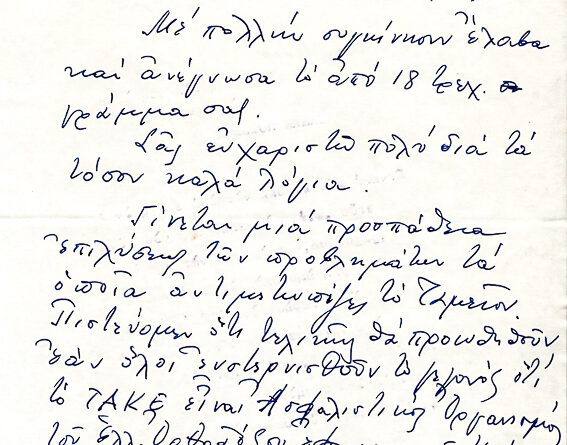 Μέ πολλήν συγκίνησιν ἔλαβα
καί ἀνέγνωσα τό ἀπό 18 τρεχ.
γράμμα σας.
Σᾶς εὐχαριστῶ πολύ διά τά
τόσον καλά λόγια.
Γίνεται μιά προσπάθεια
ἐπιλύσεως τῶν προβλημάτων τά
ὁποῖα ἀντιμετωπίζει τό Ταμεῖον.
Πιστεύομεν ὅτι τελικῶς θά προωθηθοῦν
ἐάν ὅλοι ἐνστερνισθοῦν τό γεγονός ὅτι
τό ΤΑΚΕ εἶναι Ἀσφαλιστικός Ὀργανισμός
τοῦ